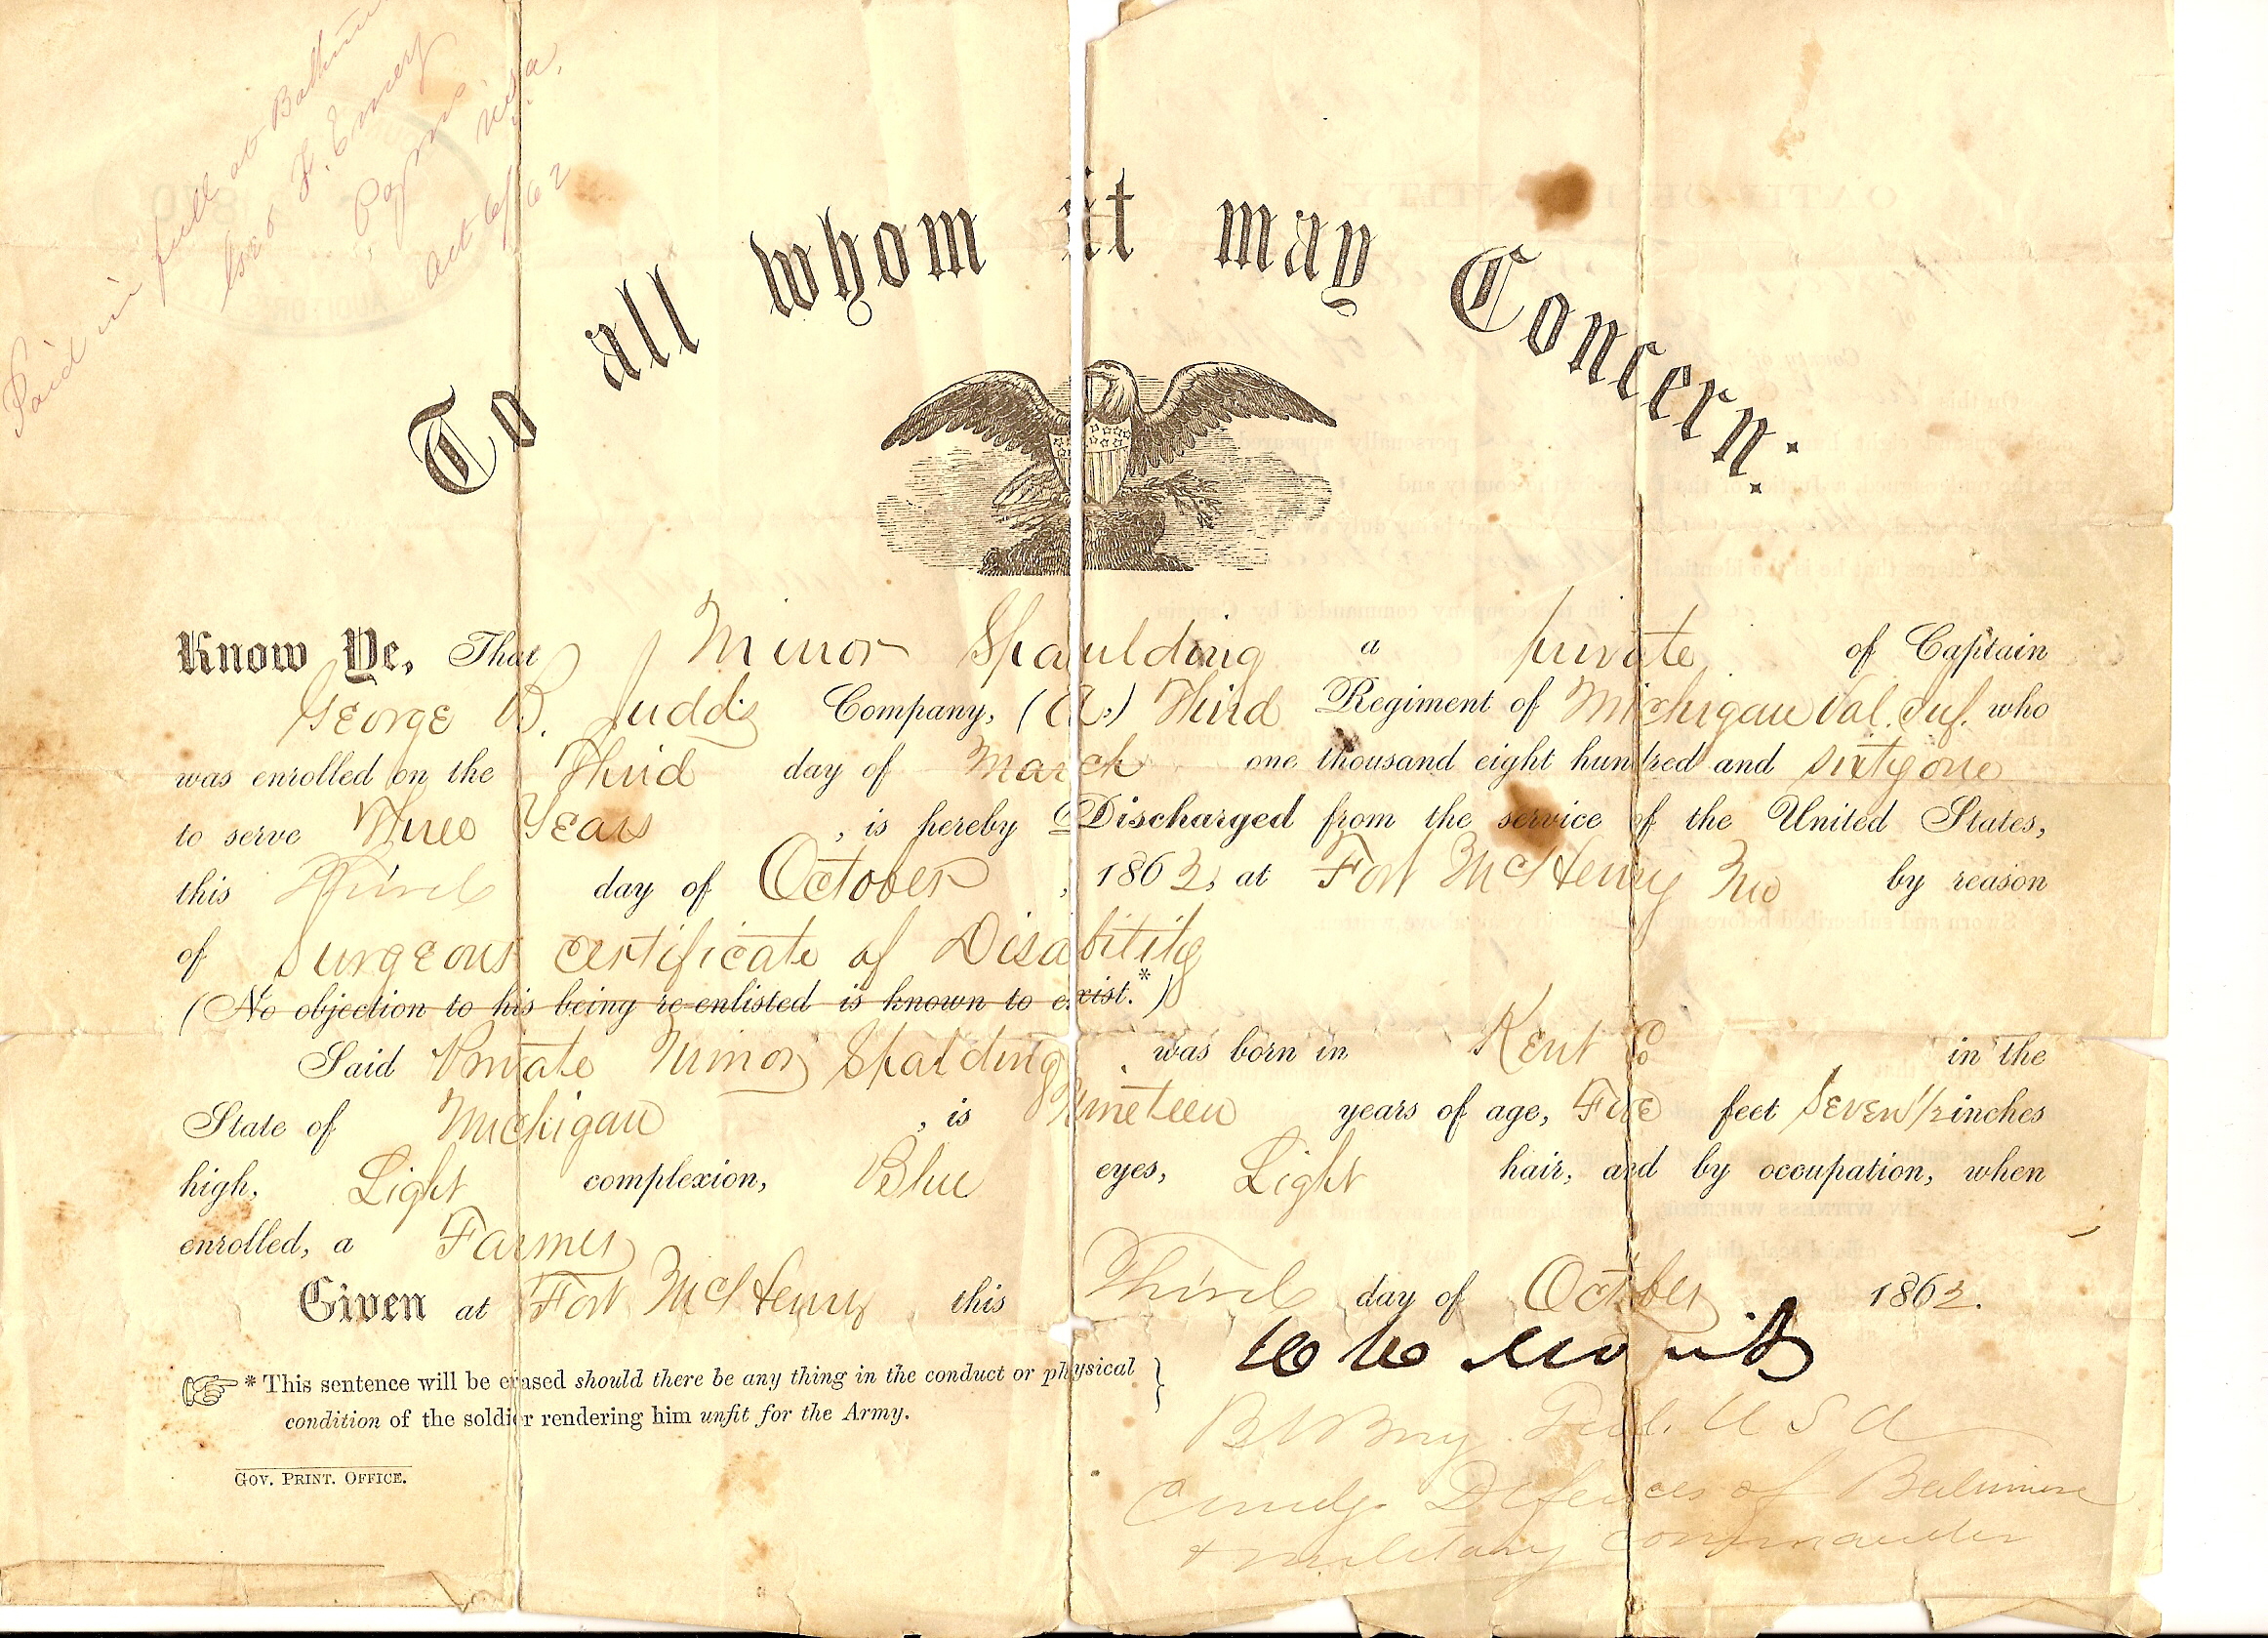 Paid in full at
F. Emery
Paym
U.S.A.
Oct 6/62
To all whom it may Concern:
Know Ye, That Minor Spaulding a private of Captain
George B. Judd's Company, (A.) Third Regiment of Michigan Vol. Inf. who
was enrolled on the Third day of March one thousand eight hundred and sixty one
to serve Three Years, is hereby Discharged from the service of the United States,
this Third day of October, 1862, at Fort McHenry Md by reason
of Surgeons certificate of Disability
(No objection to his being re-enlisted is known to exist.*)
Said Private Minor Spalding, was born in Kent Co in the
State of Michigan, is Nineteen years of age, Five feet Seven 1/2 inches
high, Light complexion, Blue eyes, Light hair, and by occupation, when
enrolled, a Farmer
Given at Fort McHenry this Third day of October 1862.
* This sentence will be erased should there be any thing in the conduct or physical
condition of the soldier rendering him unfit for the Army.
Gov. Print. Office.
W W Morris
Genl. U S A
Comdg. Defences of Baltimore
& Military Commander